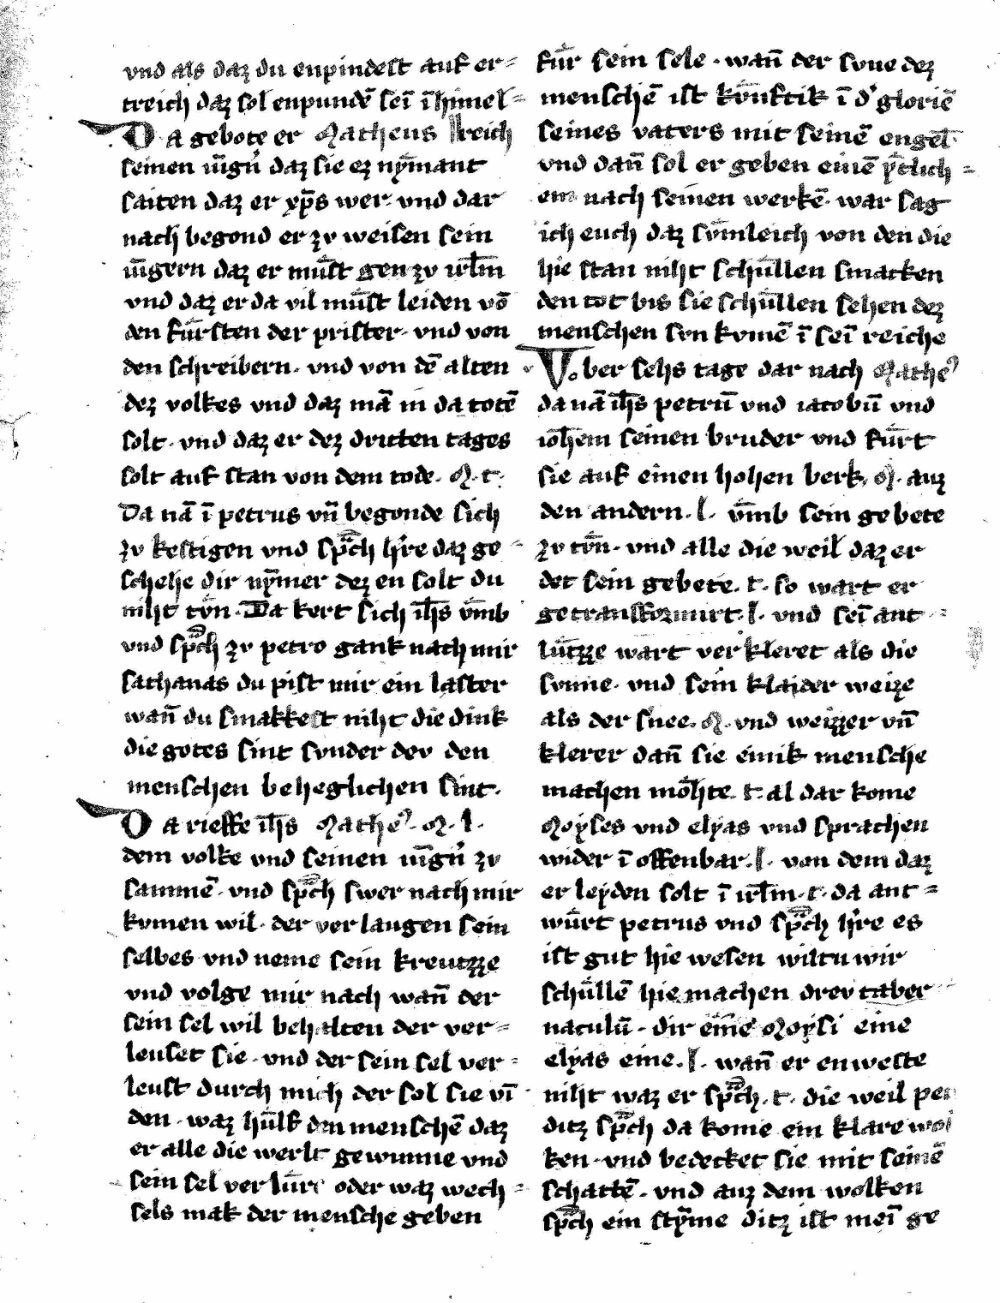 vnd als daz du enpindest auf er=
treich daz sol enpundē sei᷑ ī himel=
Da gebote er Matheus ſreich
seinen iu̅gn̄ daz sie ez nẏmant
saiten daz er xp̄s wer. vnd dar
nach begond er zv weisen sein
iu̅gern daz er mu̅st gen zv irl̅m
vnd daz er da vil mu̅st leiden vō
den fu̅rsten der prister. vnd von
den schreibern. vnd von dē alten
dez volkes vnd daz mā in da totē
solt. vnd daz er dez dritten tages
solt auf stan von dem tode. M. t.
Da nā ī petrus vn̄ begonde sich
zv kestigen vnd sp̄ch h̄re daz ge=
schehe dir nẏmer dez en solt du
niht tv̄n. Da kert sich ih̄s v̄mb
vnd sp̄ch zv petro gank nach mir
sathanas du pist mir ein laster
wan̄ du smakkest niht die dink
die gotes sint svnder dev den
menschen beheglichen sint.
Da rieffe ih̄s Mathe᷒. M. l.
dem volke vnd seinen iu̅gn̄ zv
sammē. vnd sp̄ch swer nach mir
kvmen wil. der verlaugen sein
selbes vnd neme sein kreutzze
vnd volge mir nach wan̄ der
sein sel wil behalten der ver=
leuset sie. vnd der sein sel ver=
leust durch mich der sol sie vī
den. waz hu̅lf den menschē daz
er alle die werlt gewunne vnd
sein sel verlu̅re oder waz wech=
sels mak der mensche geben
fu̅r sein sele. wan̄ der svne dez
menschē ist ku̅nftik ī d᷑ gloriē
seines vaters mit seinē engel̅
vnd dan̄ sol er geben einē ẏclich=
em nach seinen werkē. war sag
ich euch daz su̅mleich von den die
hie stan niht schu̅llen smacken
den tot bis sie schu̅llen sehen dez
menschen svn kvmē ī sei᷑ reiche
Vber sehs tage dar nach Mathe᷒
da nā ih̄s petru̅ vnd iacobu̅ vnd
ioh̄em seinen bruder vnd fu̅rt
sie auf einen hohen berk. M. auz
den andern. l. v̄mb sein gebete
zv tv̄n. vnd alle die weil daz er
det sein gebete. t. so wart er
getransformirt. l. vnd sei᷑ ant=
lu̅tzze wart verkleret als die
svnne. vnd sein klaider weize
als der snee. M. vnd weizzer vn̄
klerer dan̄ sie eīnik mensche
machen mo̅hte. t. al dar kome
Moyses vnd elyas vnd sprachen
wider ī offenbar. l. von dem daz
er leẏden solt ī irl̅m. t. da ant=
wu̅rt petrus vnd sp̄ch h̄re es
ist gut hie wesen wiltu wir
schu̅llē hie machen drev taber
naculu̅. dir eīne Moẏsi eine
elẏas eine. l. wan̄ er enweste
niht waz er sp̄ch. t. die weil pet
ditz sp̄ch da kome ein klare wol
ken. vnd bedecket sie mit seinē
schatē. vnd auz dem wolken
sp̄ch ein stẏme ditz ist mei᷑ ge